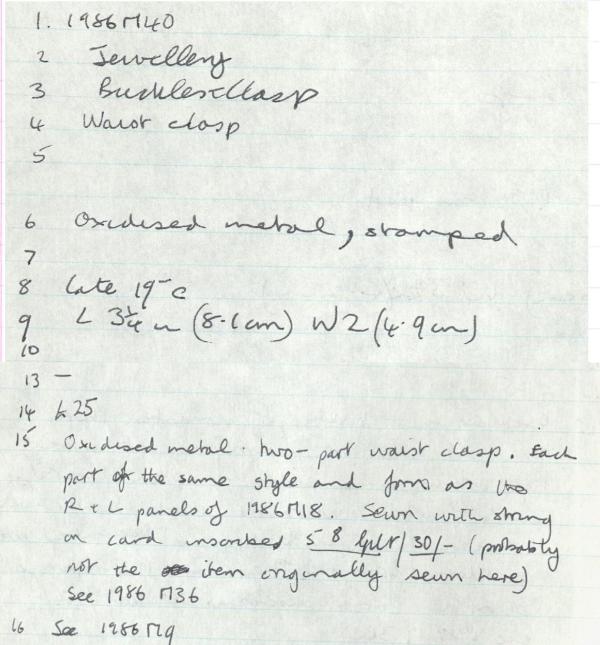 1. 1986M40
2 Jewellery
3 Buckles+Clasp
4 Waist clasp
5
6 Oxidised metal, stamped
7
8 Late 19th c
9 L 3¼ in (8.1cm) W 2 (4.9cm)
10
13 —
14 £25
15 Oxidised metal. two-part waist clasp. Each
part of the same style and form as the
R + L panels of 1986M18. Sewn with string
on card inscribed 5 8 /30/- (probably
not the item originally sewn here)
See 1986 M36
16 See 1986M9